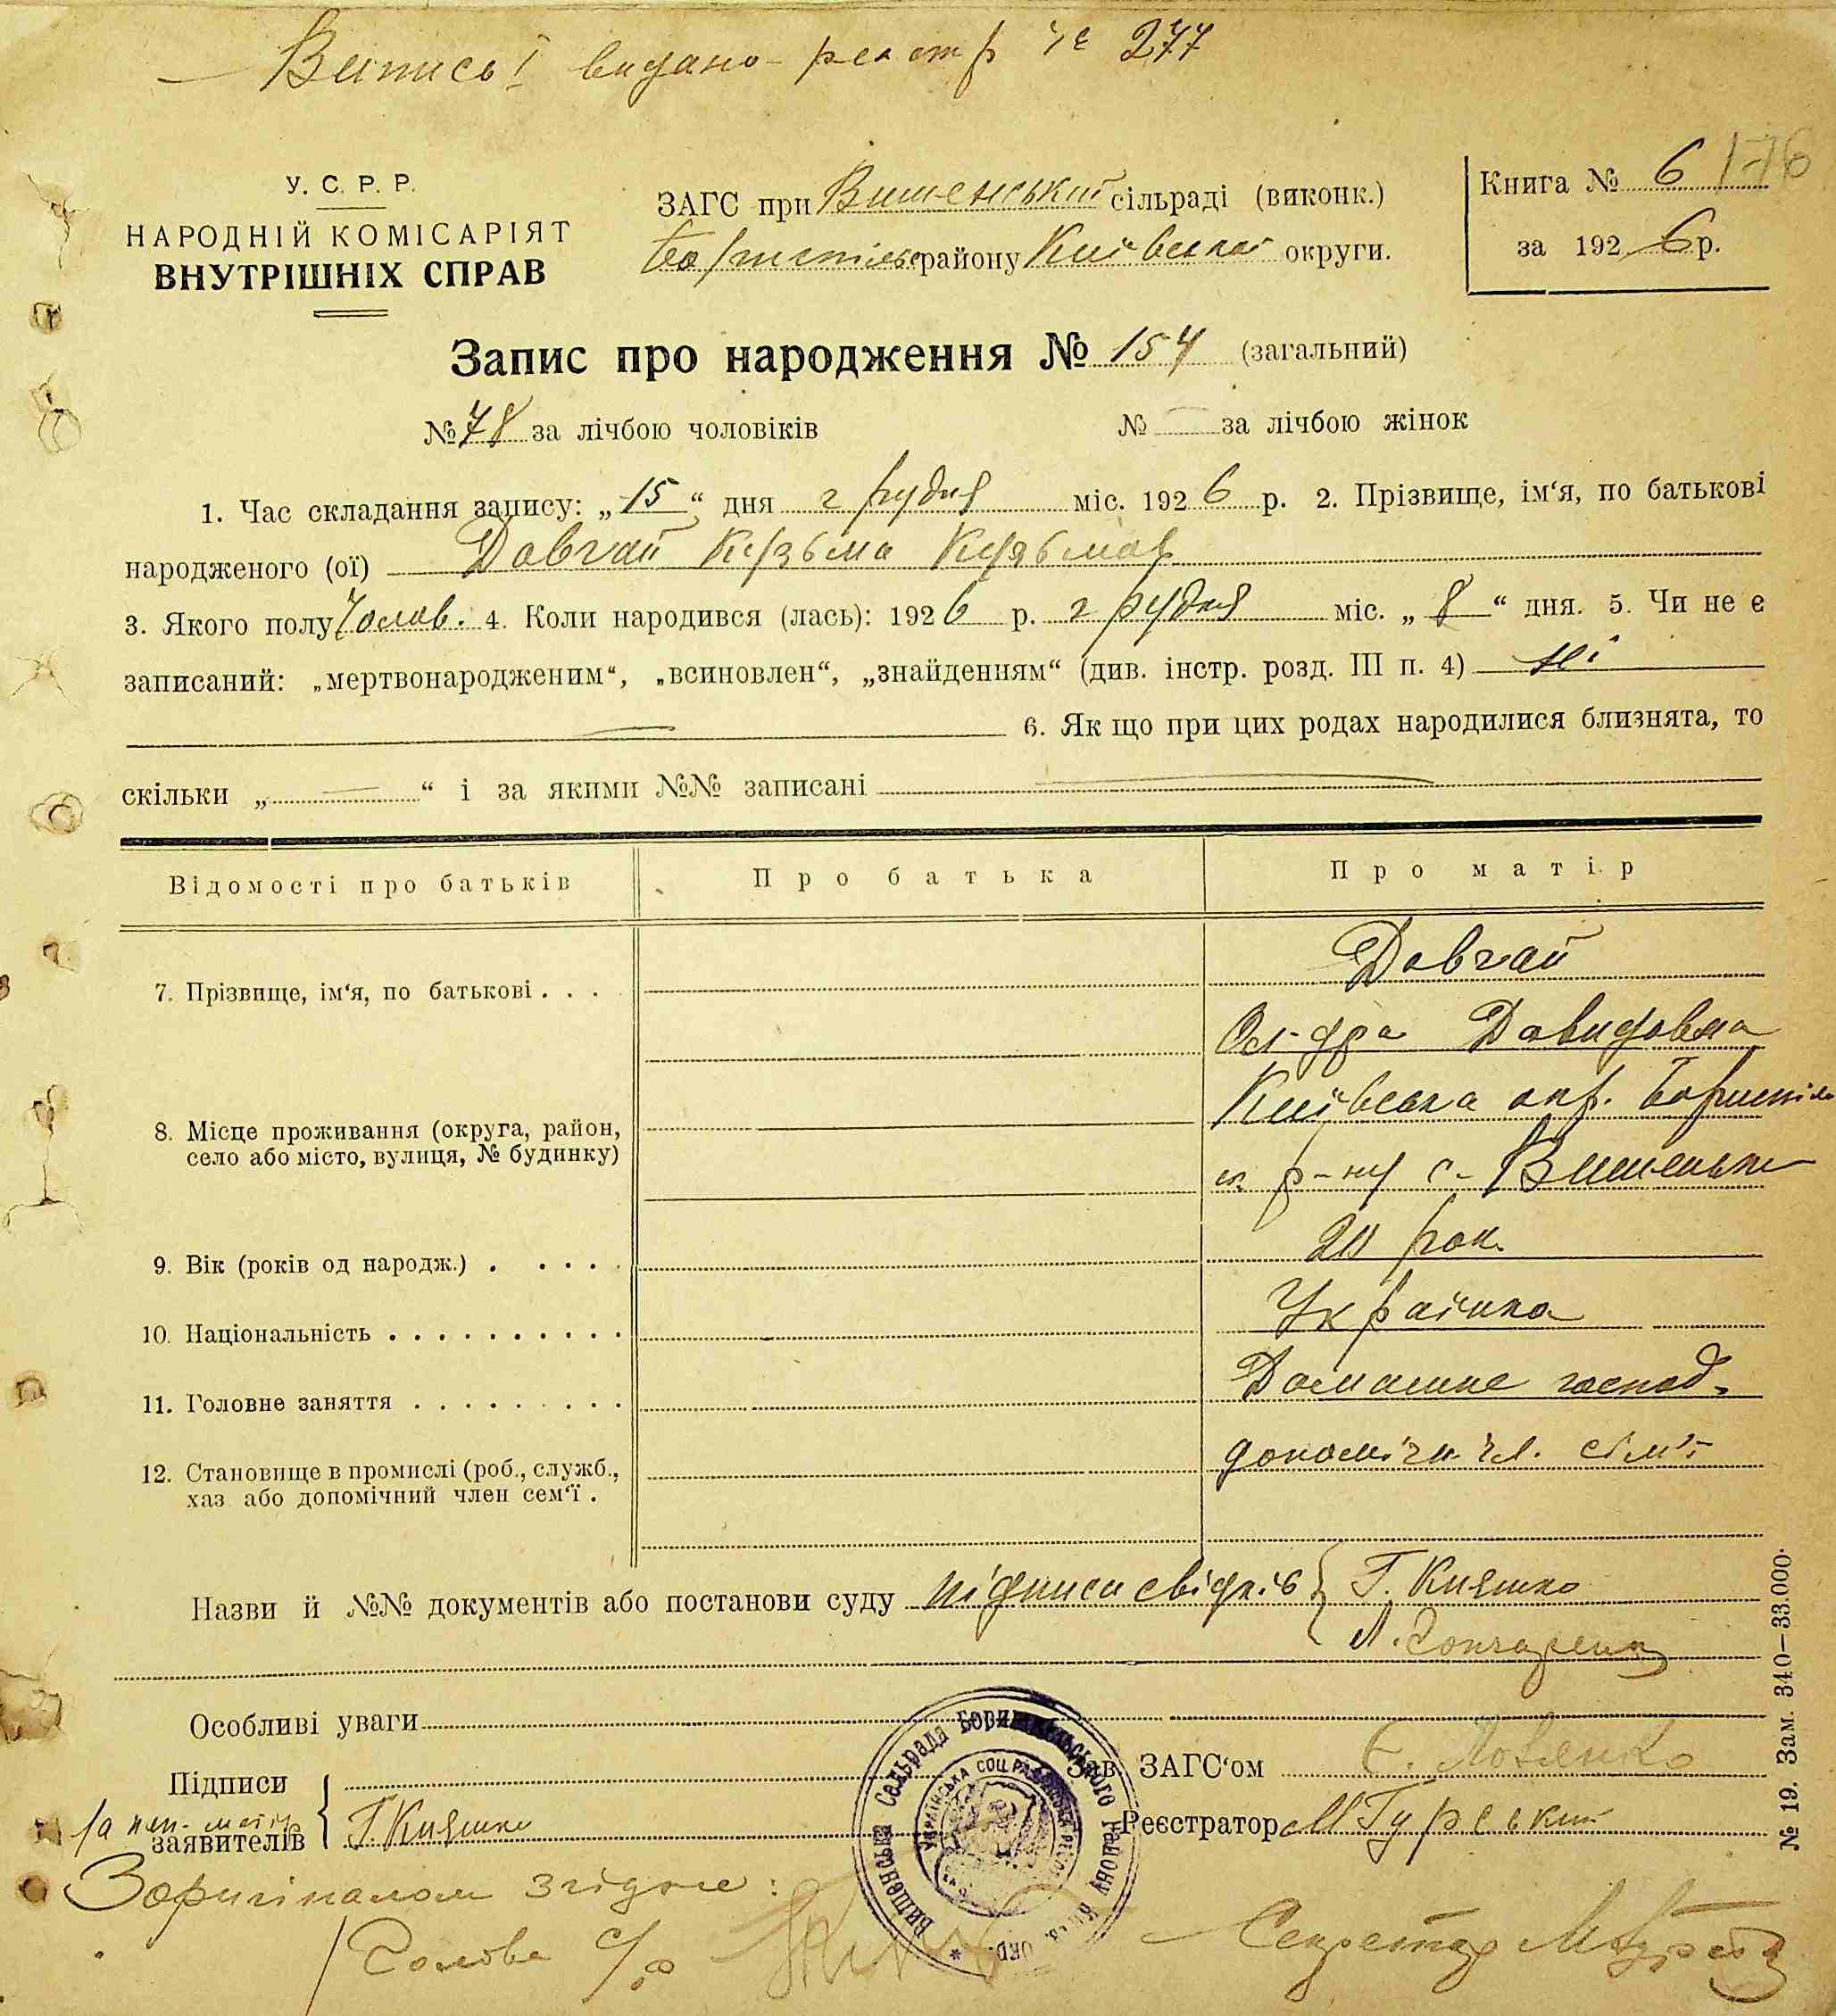 Випись видано реєстр № 277
176
У. С. Р. Р.
НАРОДНІЙ КОМІСАРІЯТ
ВНУТРІШНІХ СПРАВ
ЗАГС при Вишенській сільраді (виконк.)
району Київської округи.
Книга № 6
за 1926 р.
Запис про народження № 154 (загальний)
№ 78 за лічбою чоловіків № — за лічбою жінок
1. Час складання запису: „15“ дня грудня міс. 1926 р. 2. Прізвище, ім‘я, по батькові
народженого (ої) Довгай Кузьма Кузьмов
3. Якого полу Чолов. 4. Коли народився (лась): 1926 р. грудня міс. „8“ дня. 5. Чи не є
записаний: „мертвонародженим“, „всиновлен“, „знайденням“ (див. інстр. розд. III п. 4) ні
— 6. Як що при цих родах народилися близнята, то
скільки „—“ і за якими №№ записані —
Відомості про батьків Про батька Про матір
7. Прізвище, ім‘я, по батькові . . . Довгай
Ол-дра Давидовна
8. Місце проживання (округа, район, село або місто, вулиця, № будинку) Київська окр. Бориспіль
ськ. р-ну с. Вишеньки
9. Вік (років од народж.) . . . . . рок.
10. Національність . . . . . . . . . . Українка
11. Головне заняття . . . . . . . . . Домашнє господ.
12. Становище в промислі (роб., служб., хаз або допомічний член сем‘ї . допомічн. чл. сім'ї
Назви й №№ документів або постанови суду підписи свідків { Г. Княшко
Л. Гончаренко
Особливі уваги
Підписи
за неп. матір
заявителів { Г Княшко
Зав. ЗАГС‘ом Є.
Реєстратор М Гурський
Вишенська Сельрада Бориспільського Району Київ. Окр. *
УКРАЇНСЬКА СОЦ РАДЯНСЬКА РЕСПУБЛ
З оригіналом згідне:
Голова с/р
Секретар М Гурський
№ 19. Зам. 340—33.000.